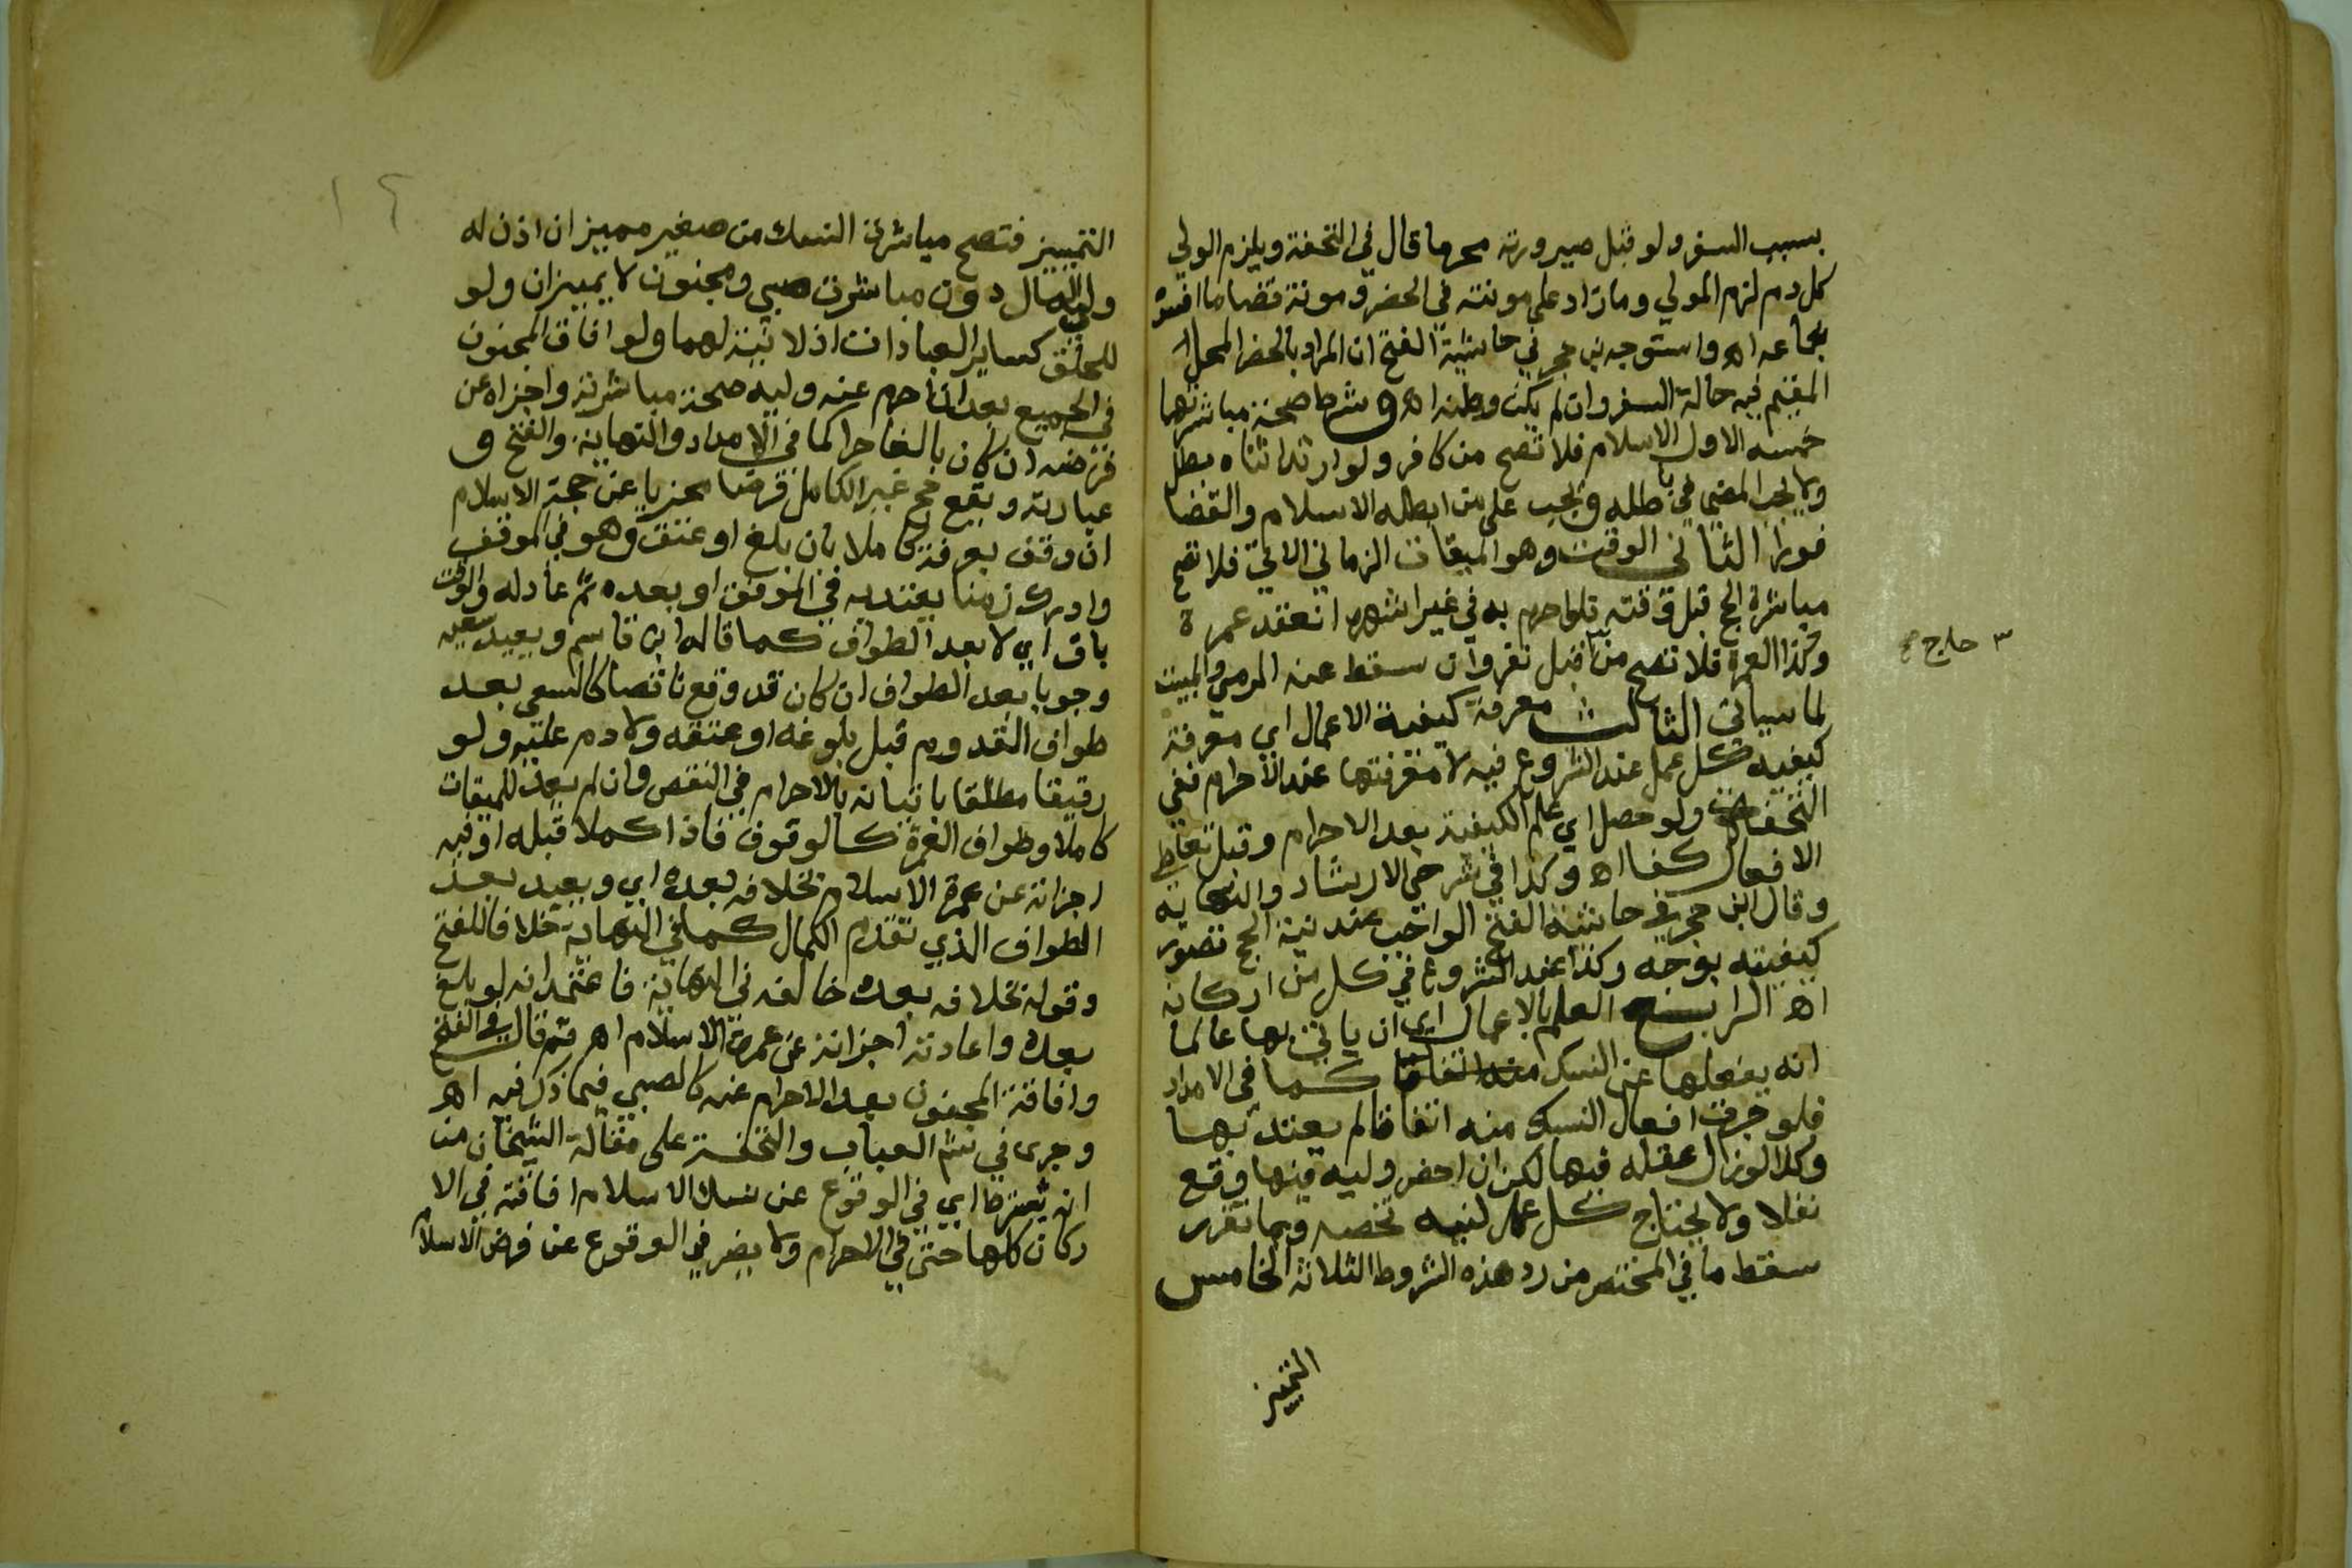 بسبب السفر ولو قبل صيرورته محرما قال في التحفة ويلزم الولي
كل دم لزم المولي وما زاد على مونته في الحضر ومونة قضا ما افسده
بجماعه اه واستوجه بن حجر في حاشية الفتح ان المراد بالحضر المحل
المقيم فيه حالة السفر وان لم يكن وطنه اه وشرط صحة مباشرتها
خمسه الاول الاسلام فلا تصح من كافر ولو ارتد اثناه بطل
ولا يجب المضي في باطله ويجب على من ابطله الاسلام والقضا
فورا الثاني الوقت وهو الميقات الزماني الاتي فلا تصح
مباشرة الحج قبل وقته فلو احرم به في غير اشهره انعقد عمرة
وكذا العمرة فلا تصح من قبل نفر وان سقط عنه الرمي والمبيت
٣ حاج صح
لما سياتي الثالث معرفة كيفية الاعمال اي معرفة
كيفيه كل عمل عند الشروع فيه لا معرفتها عند الاحرام ففي
التحفة ولو حصل اي علم الكيفية بعد الاحرام وقبل تعاطي
الافعال كفا اه وكذا في شرحي الارشاد والنهاية
وقال ابن حجر في حاشية الفتح الواجب عند نية الحج تصور
كيفيته بوجه وكذا عند الشروع في كل من اركانه
اه الرابع العلم بالاعمال اي ان ياتي بها عالما
انه يفعلها عن النسك كما في الامداد
فلو جرت افعال النسك منه اتفاقا لم يعتد بها
وكذا لو زال عقله فيها لكن ان احضر وليه فيها وقع
نفلا ولا يحتاج كل عمل لنيه تخصه وبما تقرر
سقط ما في المختصر من رد هذه الشروط الثلاثة الخامس
التمييز
١٢
التمييز فتصح مباشرة النسك من صغير مميز ان اذن له
ولي المال دون مباشرة صبي ومجنون لا يميزان ولو
للحلق كساير العبادات اذ لا نية لهما ولو افاق المجنون
في الجميع بعد ان احرم عنه وليه صحة مباشرته واجزاه عن
فرضه ان كان بالغا حرا كما في الامداد والنهاية والفتح و
عبادته ويقع حج غير الكامل فرضا مجزيا عن حجة الاسلام
ان وقف بعرفة كاملا بان بلغ او عتق وهو في الموقف
وادرك زمنا يعتد به في الموقف او بعده ثم عاد له والوقت
باق اي لا بعد الطواف كما قاله ابن قاسم ويعيد سعيه
وجوبا بعد الطواف ان كان قد وقع ناقصا كالسعي بعد
طواف القدوم قبل بلوغه او عتقه ولا دم عليه ولو
رقيقا مطلقا باتيانه بالاحرام في النقص وان لم يعد للميقات
كاملا وطواف العمرة كالوقوف فاذا كملا قبله او فيه
اجزاته عن عمرة الاسلام بخلافه بعده اي ويعيد بعد
الطواف الذي تقدم الكمال كما في النهاية خلافا للفتح
وقوله بخلافه بعده خالفه في النهاية فاعتمد انه لو بلغ
بعده واعادته اجزاته عن عمرة الاسلام اه ثم قال في الفتح
وافاقة المجنون بعد الاحرام عنه كالصبي فيما ذكر فيه اه
وجرى في شرح العباب والتحفة على مقالة الشيخان من
انه يشترط اي في الوقوع عن نسك الاسلام افاقته في الا
ركان كلها حتى في الاحرام ولا يضر في الوقوع عن فرض الاسلام